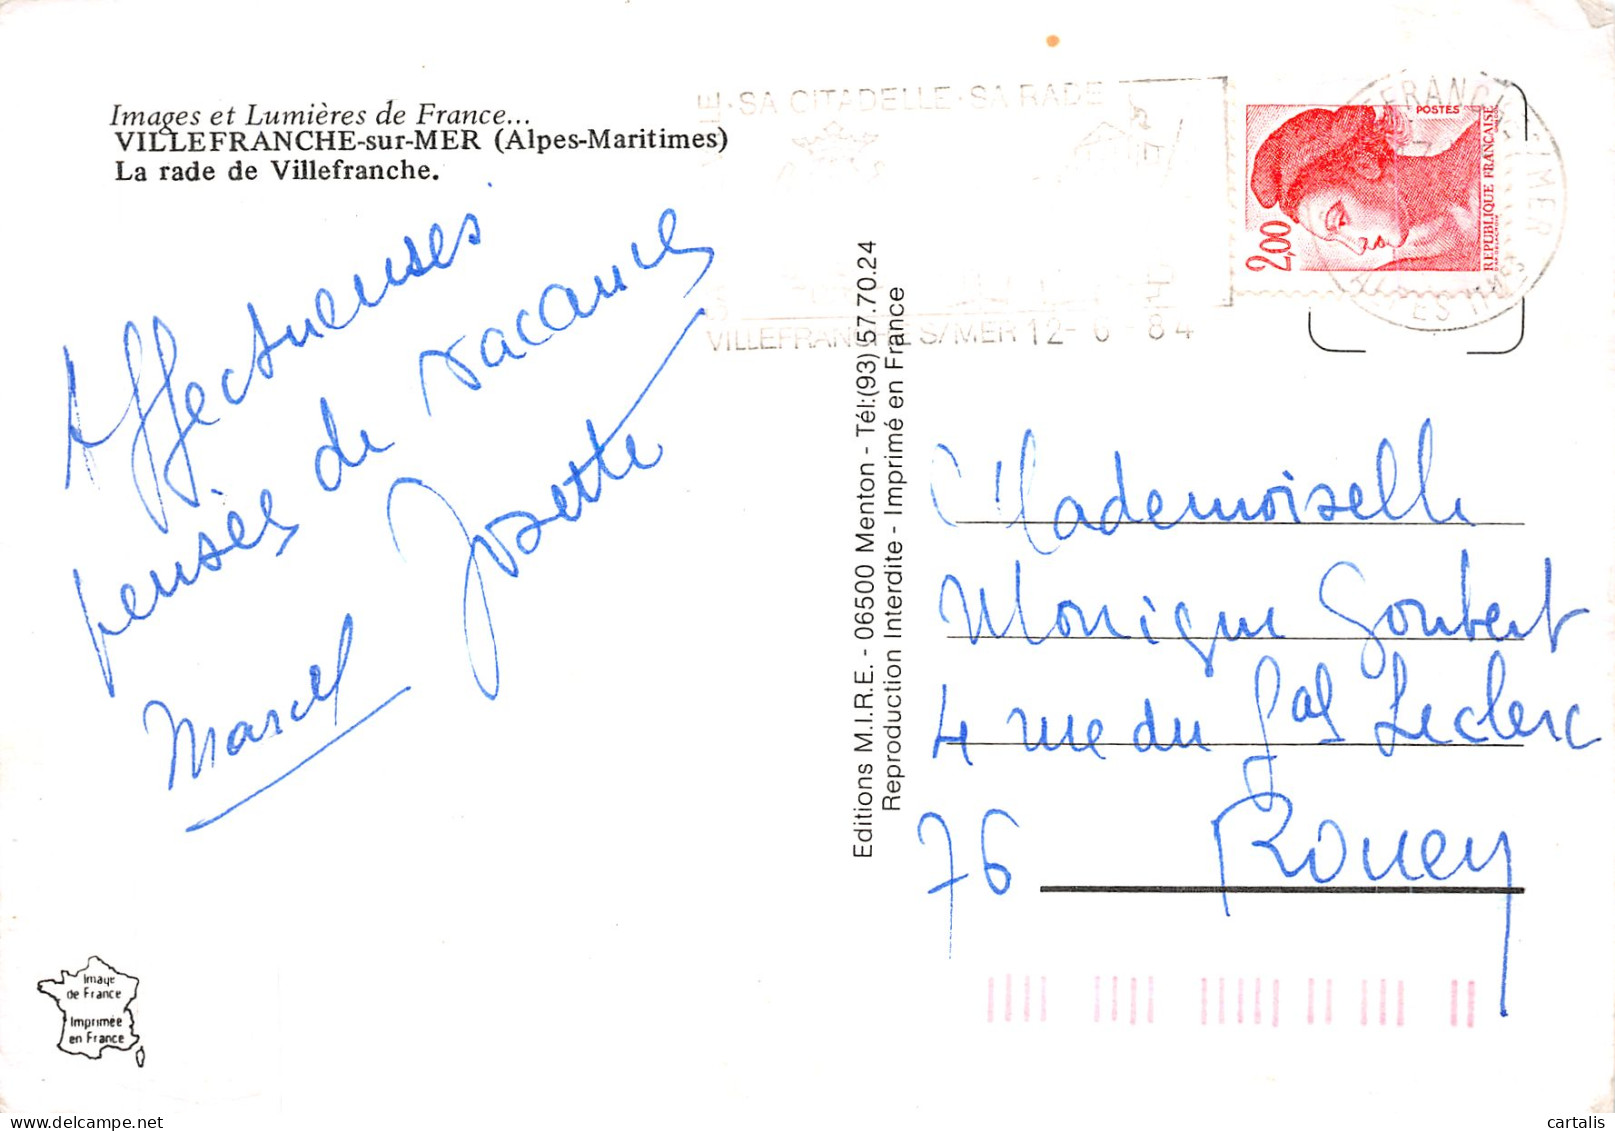 Images et Lumières de France...
VILLEFRANCHE-sur-MER (Alpes-Maritimes)
La rade de Villefranche.
Affectueuses
pensées de vacances
Josette
Marcel
· SA CITADELLE · SA RADE
VILLEFRANCHE S/MER 12- 6 - 84
POSTES
2,00
REPUBLIQUE FRANÇAISE
Editions M.I.R.E. - 06500 Menton - Tél:(93) 57.70.24
Reproduction Interdite - Imprimé en France
Mademoiselle
Monique Goubert
4 rue du Gal Leclerc
76 Rouen
Image
de France
Imprimée
en France
delcampe.net
cartalis